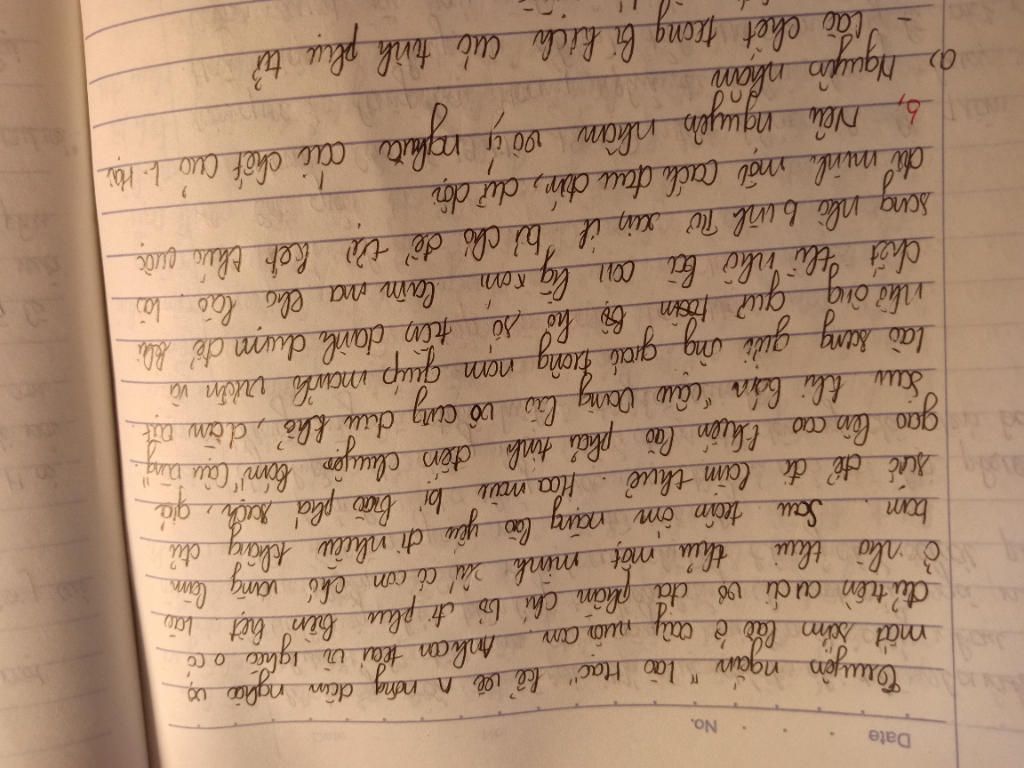 Date No.
Truyện ngắn "Lão Hạc" kể về n nông dân nghèo vợ
mất sớm lão ở vậy nuôi con. Anh con trai vì nghèo o có
đủ tiền cưới vợ đã phẫn chí bỏ đi phu biền biệt lão
ở nhà thui thủi một mình chỉ có con chó vàng làm
bạn. Sau trận ốm nặng lão yếu đi nhiều không đủ
sức để đi làm thuê. Hoa màu bị bão phá sạch, giá
gạo lên cao khiến lão phải tính đến chuyện bán "cậu vàng"
sau khi bán "cậu vàng" lão vô cùng đau khổ, dằn vặt
lão sang gửi ông giáo trông nom giúp mảnh vườn và
nhờ ông giữ toàn bộ hộ số tiền dành dụm để khi
chết thì nhờ bà con lg xóm làm ma cho lão. lão
sang nhà binh Tư xin ít bả chó để tự kết thúc cuộc
đời mình một cách đau đớn, dữ dội
b, Nêu nguyên nhân và ý nghĩa cái chết của l. Hạc
a) Nguyên nhân
- Lão chết trong bi kịch của tình phụ tử